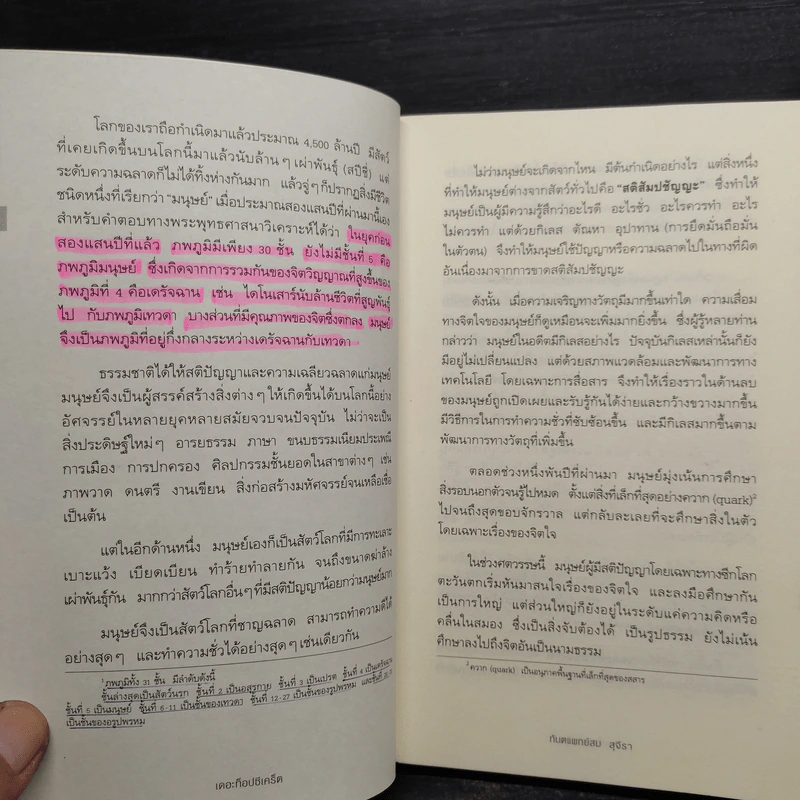 โลกของเราถือกำเนิดมาแล้วประมาณ 4,500 ล้านปี มีสัตว์
ที่เคยเกิดขึ้นบนโลกนี้มาแล้วนับล้านๆ เผ่าพันธุ์ (สปีชี่) แต่
ระดับความฉลาดก็ไม่ได้ทิ้งห่างกันมาก แล้วจู่ๆ ก็ปรากฏสิ่งมีชีวิต
ชนิดหนึ่งที่เรียกว่า "มนุษย์" เมื่อประมาณสองแสนปีที่ผ่านมานี้เอง
สำหรับคำตอบทางพระพุทธศาสนาวิเคราะห์ได้ว่า ในยุคก่อน
สองแสนปีที่แล้ว ภพภูมิมีเพียง 30 ชั้น ยังไม่มีชั้นที่ 5 คือ
ภพภูมิมนุษย์ ซึ่งเกิดจากการรวมกันของจิตวิญญาณที่สูงขึ้นของ
ภพภูมิที่ 4 คือเดรัจฉาน เช่น ไดโนเสาร์นับล้านชีวิตที่สูญพันธุ์
ไป กับภพภูมิเทวดา บางส่วนที่มีคุณภาพของจิตซึ่งตกลง มนุษย์
จึงเป็นภพภูมิที่อยู่กึ่งกลางระหว่างเดรัจฉานกับเทวดา
ธรรมชาติได้ให้สติปัญญาและความเฉลียวฉลาดแก่มนุษย์
มนุษย์จึงเป็นผู้สรรค์สร้างสิ่งต่างๆ ให้เกิดขึ้นได้บนโลกนี้อย่าง
อัศจรรย์ในหลายยุคหลายสมัยจวบจนปัจจุบัน ไม่ว่าจะเป็น
สิ่งประดิษฐ์ใหม่ๆ อารยธรรม ภาษา ขนบธรรมเนียมประเพณี
การเมือง การปกครอง ศิลปกรรมชั้นยอดในสาขาต่างๆ เช่น
ภาพวาด ดนตรี งานเขียน สิ่งก่อสร้างมหัศจรรย์จนเหลือเชื่อ
เป็นต้น
แต่ในอีกด้านหนึ่ง มนุษย์เองก็เป็นสัตว์โลกที่มีการทะเลาะ
เบาะแว้ง เบียดเบียน ทำร้ายทำลายกัน จนถึงขนาดฆ่าล้าง
เผ่าพันธุ์กัน มากกว่าสัตว์โลกอื่นๆ ที่มีสติปัญญาน้อยกว่ามนุษย์มาก
มนุษย์จึงเป็นสัตว์โลกที่ชาญฉลาด สามารถทำความดีได้
อย่างสุดๆ และทำความชั่วได้อย่างสุดๆ เช่นเดียวกัน
¹ ภพภูมิทั้ง 31 ชั้น มีลำดับดังนี้
ชั้นล่างสุดเป็นสัตว์นรก ชั้นที่ 2 เป็นอสุรกาย ชั้นที่ 3 เป็นเปรต ชั้นที่ 4 เป็นเดรัจฉาน
ชั้นที่ 5 เป็นมนุษย์ ชั้นที่ 6-11 เป็นชั้นของเทวดา ชั้นที่ 12-27 เป็นชั้นของรูปพรหม และชั้นที่
เป็นชั้นของอรูปพรหม
เดอะท็อปซีเคร็ต
ไม่ว่ามนุษย์จะเกิดจากไหน มีต้นกำเนิดอย่างไร แต่สิ่งหนึ่ง
ที่ทำให้มนุษย์ต่างจากสัตว์ทั่วไปคือ "สติสัมปชัญญะ" ซึ่งทำให้
มนุษย์เป็นผู้มีความรู้สึกว่าอะไรดี อะไรชั่ว อะไรควรทำ อะไร
ไม่ควรทำ แต่ด้วยกิเลส ตัณหา อุปาทาน (การยึดมั่นถือมั่น
ในตัวตน) จึงทำให้มนุษย์ใช้ปัญญาหรือความฉลาดไปในทางที่ผิด
อันเนื่องมาจากการขาดสติสัมปชัญญะ
ดังนั้น เมื่อความเจริญทางวัตถุมีมากขึ้นเท่าใด ความเสื่อม
ทางจิตใจของมนุษย์ก็ดูเหมือนจะเพิ่มมากยิ่งขึ้น ซึ่งผู้รู้หลายท่าน
กล่าวว่า มนุษย์ในอดีตมีกิเลสอย่างไร ปัจจุบันกิเลสเหล่านั้นก็ยัง
มีอยู่ไม่เปลี่ยนแปลง แต่ด้วยสภาพแวดล้อมและพัฒนาการทาง
เทคโนโลยี โดยเฉพาะการสื่อสาร จึงทำให้เรื่องราวในด้านลบ
ของมนุษย์ถูกเปิดเผยและรับรู้กันได้ง่ายและกว้างขวางมากขึ้น
มีวิธีการในการทำความชั่วที่ซับซ้อนขึ้น และมีกิเลสมากขึ้นตาม
พัฒนาการทางวัตถุที่เพิ่มขึ้น
ตลอดช่วงหนึ่งพันปีที่ผ่านมา มนุษย์มุ่งเน้นการศึกษา
สิ่งรอบนอกตัวจนรู้ไปหมด ตั้งแต่สิ่งที่เล็กที่สุดอย่างควาก (quark)²
ไปจนถึงสุดขอบจักรวาล แต่กลับละเลยที่จะศึกษาสิ่งในตัว
โดยเฉพาะเรื่องของจิตใจ
ในช่วงศตวรรษนี้ มนุษย์ผู้มีสติปัญญาโดยเฉพาะทางซีกโลก
ตะวันตกเริ่มหันมาสนใจเรื่องของจิตใจ และลงมือศึกษากัน
เป็นการใหญ่ แต่ส่วนใหญ่ก็ยังอยู่ในระดับแค่ความคิดหรือ
คลื่นในสมอง ซึ่งเป็นสิ่งจับต้องได้ เป็นรูปธรรม ยังไม่เน้น
ศึกษาลงไปถึงจิตอันเป็นนามธรรม
² ควาก (quark) เป็นอนุภาคพื้นฐานที่เล็กที่สุดของสสาร
ทันตแพทย์สม สุจีรา